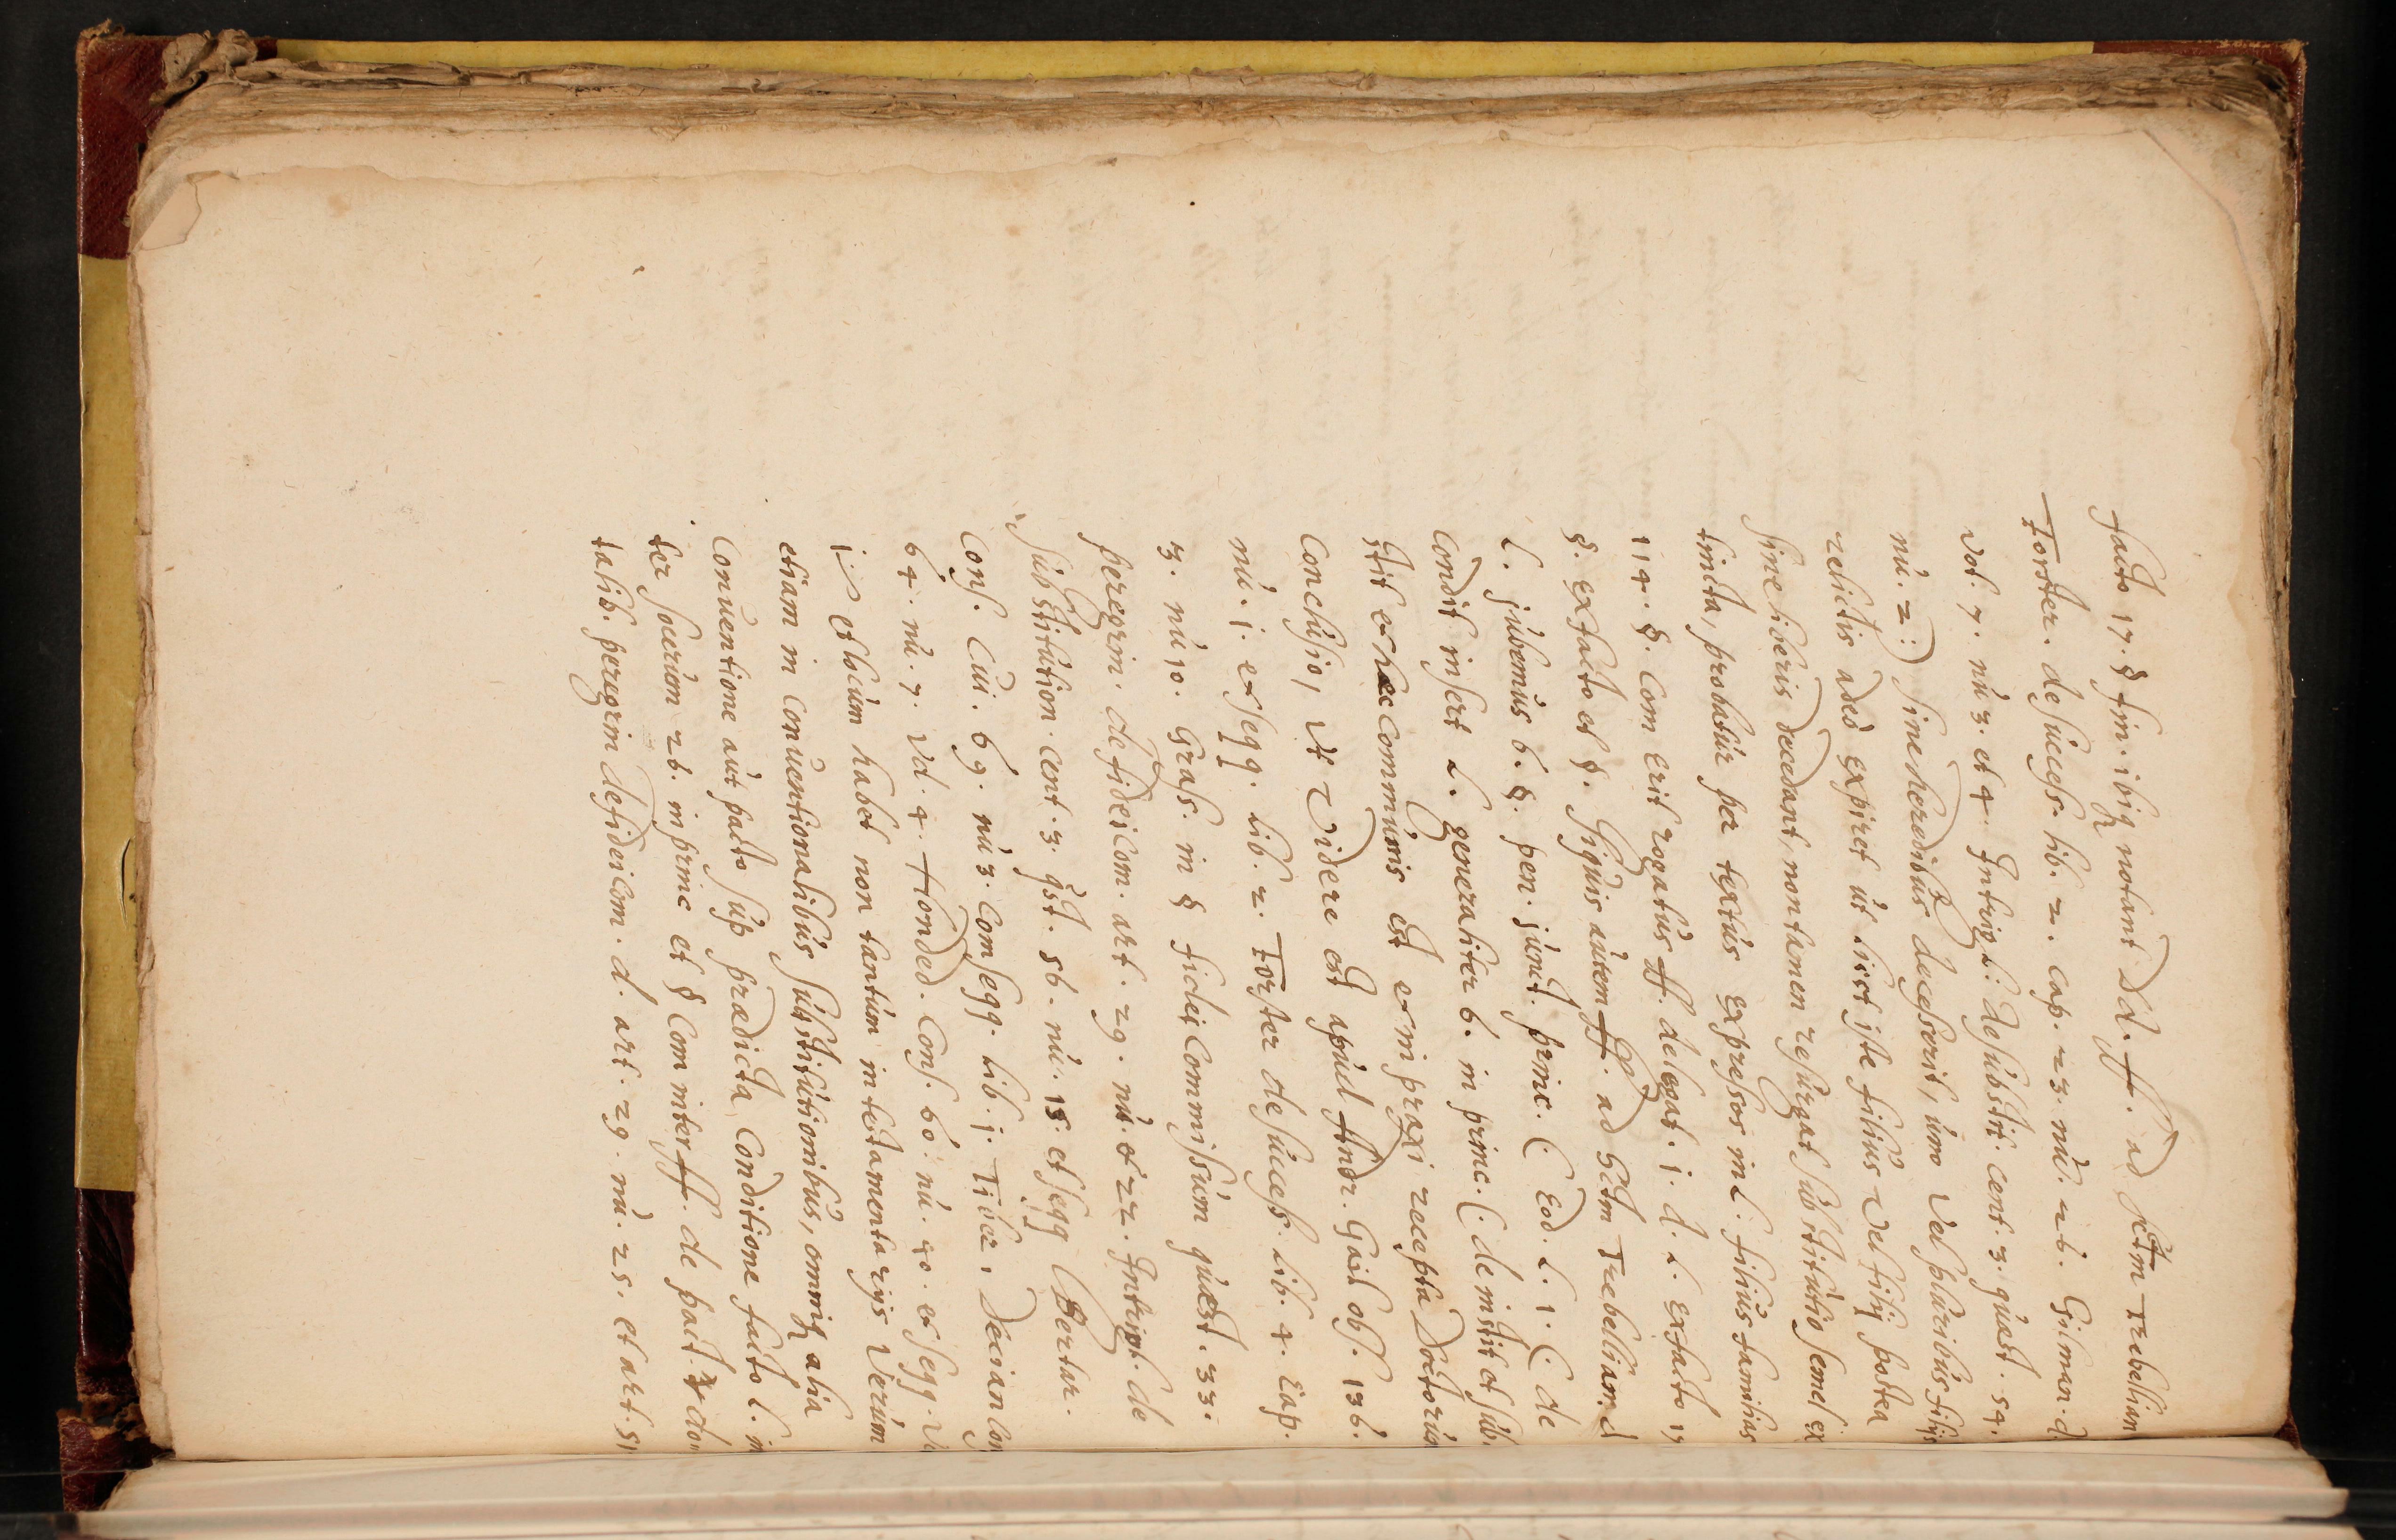 facto 17. § fin. ibiq notant Dd. ff. ad Sctm Trebellian
Forster. de success. lib. 2. cap. 23. nú. 26. Gilman. d.
vot. 7. nú 3. et 4. Intrigl. de substit. cent. 3. quæst. 54.
nú. 2:) sine heredibus decesserit, úno vel pluribús filijs
relictis adeo expiret út licet iste filius vel filij postea
sine liberis decedant, non tamen resúrgat súbstitútio semel ex
tincta, probatúr per textús expressos in l. filiús familias
114. §. Cum erit rogatús ff. de legat. 1. d. l. ex facto 17
§. ex facto et §. si quis aútem ff. ad Sctm Trebellian. d
l. júbemús 6. §. pen. júnct. princ. C. Eod. l. 1. C. de
Condit insert l. generaliter 6. in princ. C. de instit et súb.
stit et hæc Commúnis est et in praxi recepta Doctorúm
Conclúsio, vt videre est apúd Andr. Gail obs. 136.
nú. 1. et seqq. lib. 2. Forster de súccess. lib. 4. Cap.
3. nú 10. Grass. in § fidei Commissúm qúæst. 33.
peregrin. de fideicom. art. 29. nú. 22. Intrigl. de
Súbstitútion. Cent. 3. qst. 56. nú. 15. et seqq Bertar.
Cons. Cúi. 69. nú 3. Com seqq. lib. 1. Tiber. Decian Con
64. nú. 7. vol. 4. Honded. Cons. 60. nú. 40. et seqq. V
1. et locúm habet non tantúm in testamentarijs verúm
etiam in Conúentionalibús súbstitútionibús, omniq alia
Conúentione aút pacto súb prædicta Conditione facto l. in
ter socerúm 26. in princ et § Com inter ff. de pact. dot
talib. peregrin de fideicom. d. art. 29. nú. 25. et art. 51